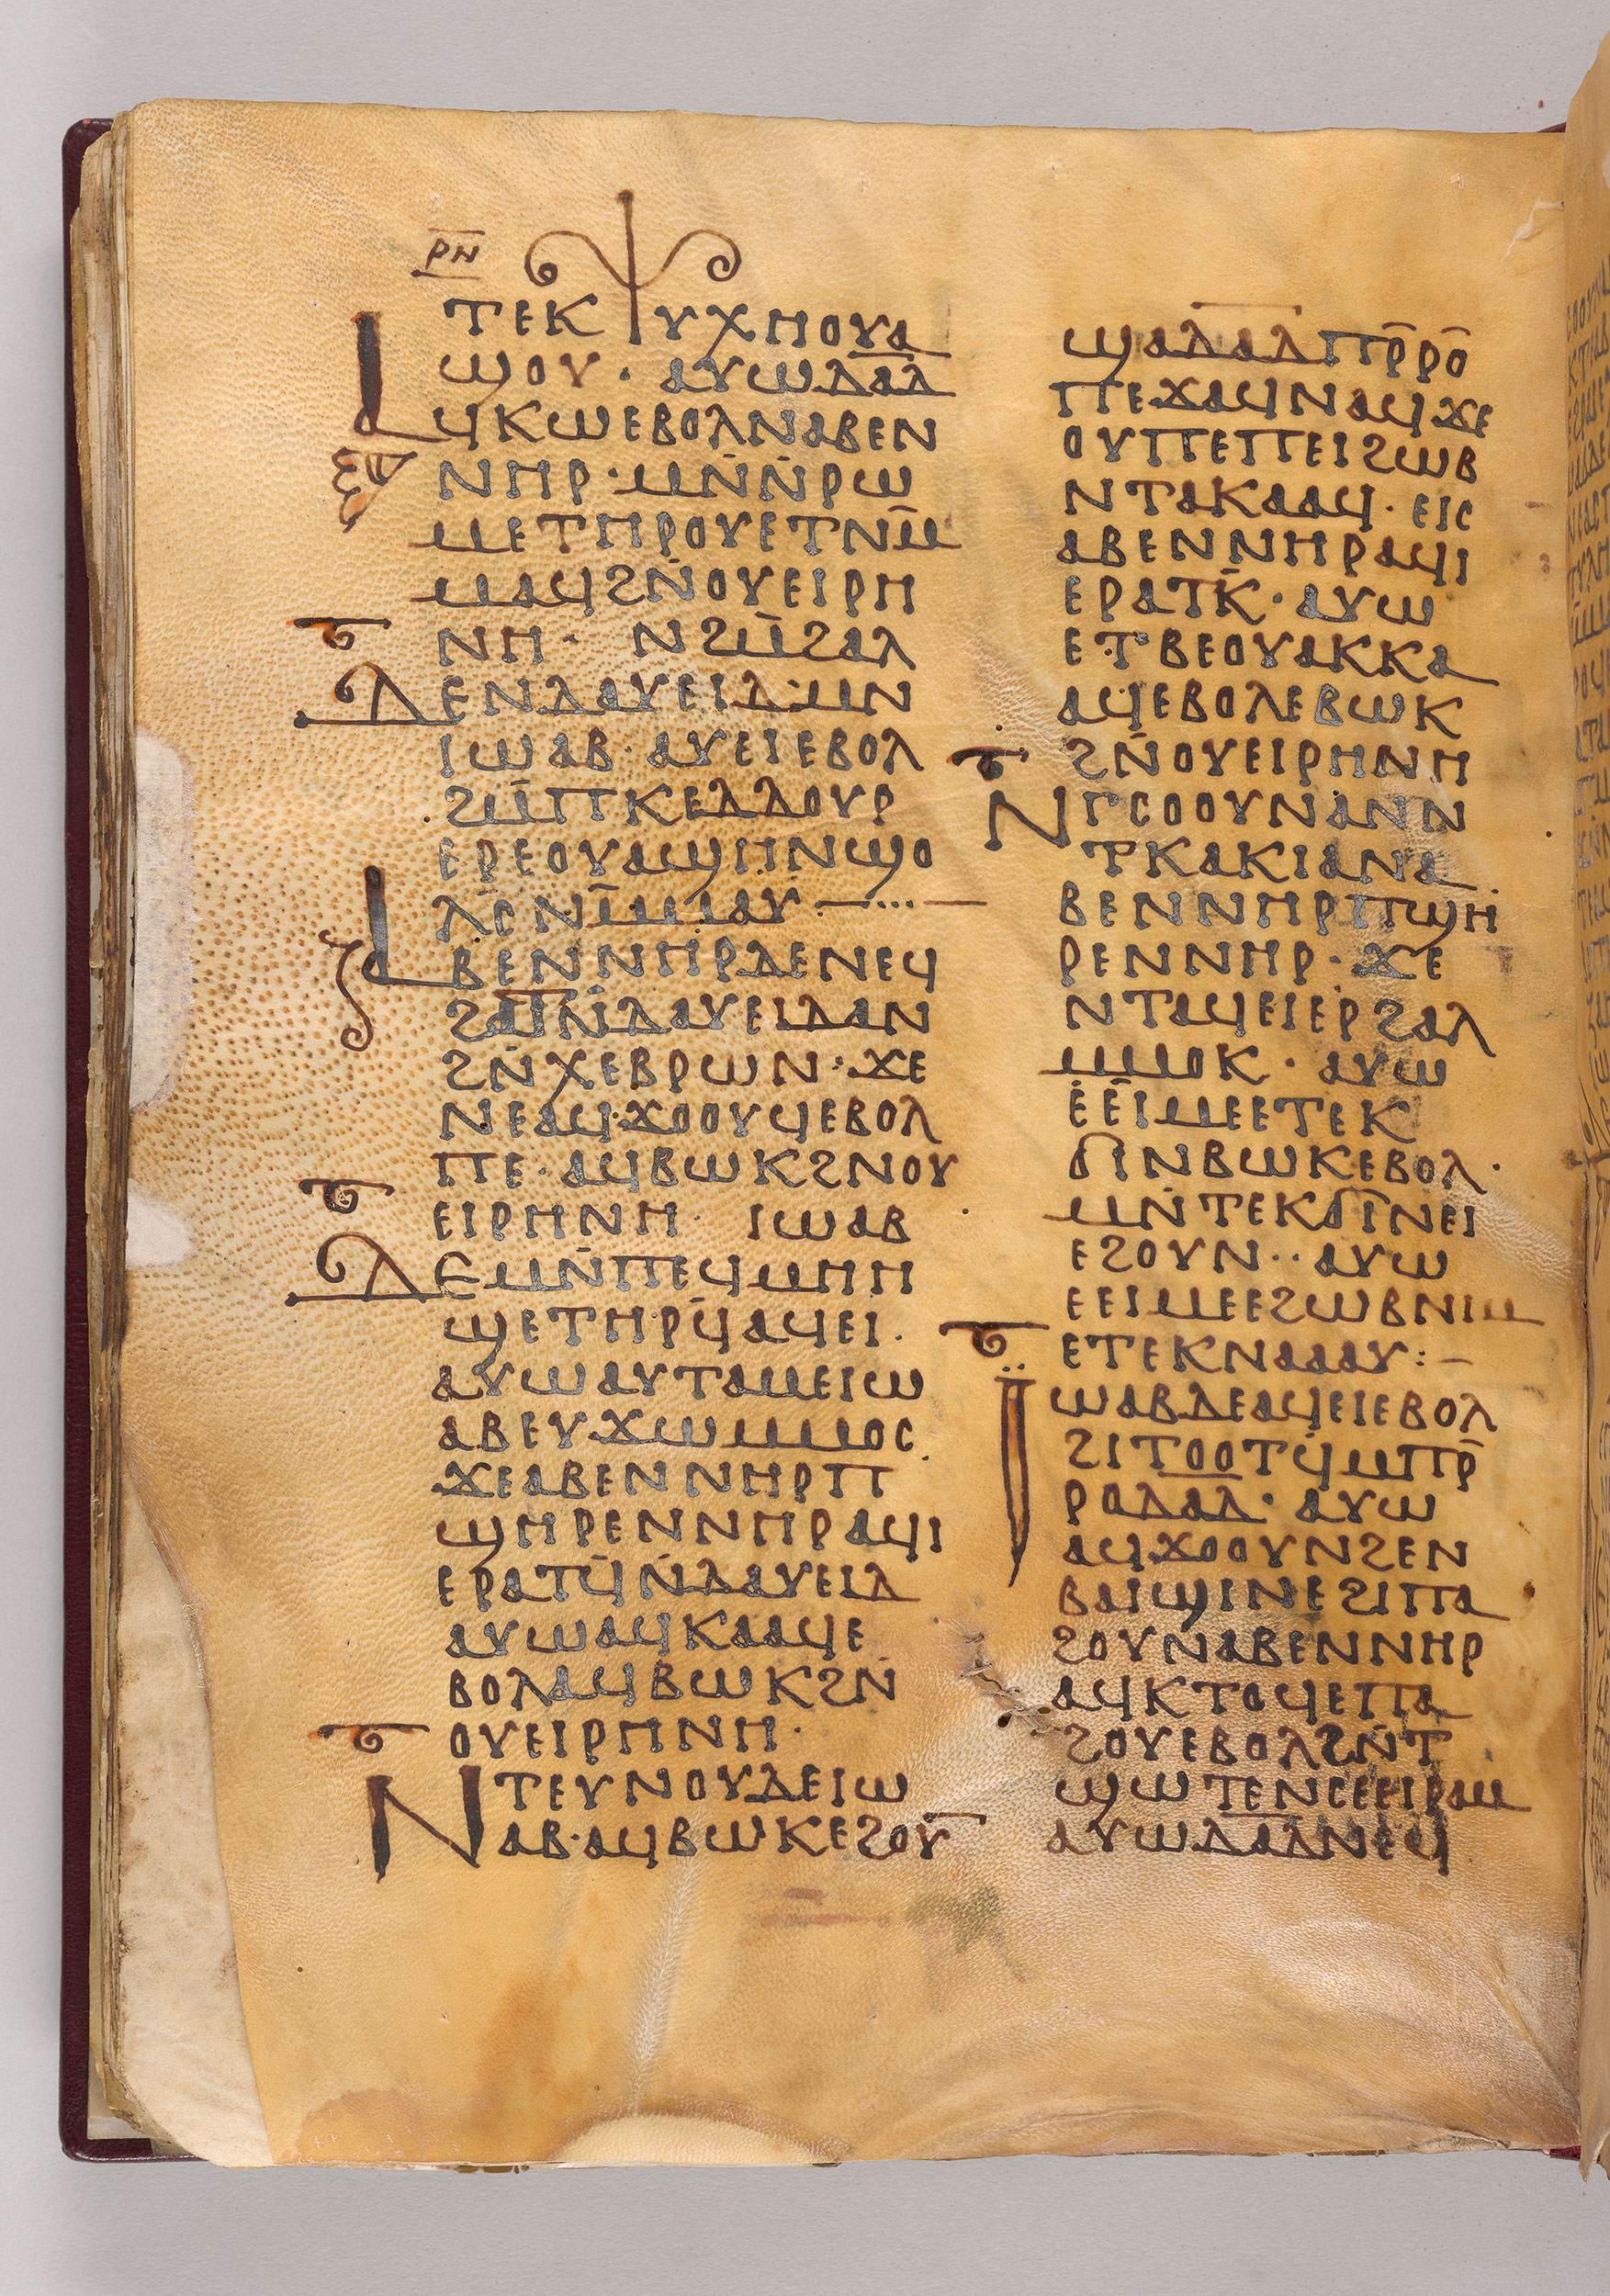 ⲣ̅ⲛ̅
ⲧⲉⲕⲯⲩⲭⲏⲟⲩⲁ
ϣⲟⲩ· ⲁⲩⲱⲇⲁ̅ⲇ
ⲁϥⲕⲱⲉⲃⲟⲗⲛⲁⲃⲉⲛ
ⲛⲏⲣ·ⲙⲛ̄ⲛ̄ⲣⲱ
ⲙⲉⲧⲏⲣⲟⲩⲉⲧⲛⲙ̄
ⲙⲁϥϩⲛ̄ⲟⲩⲉⲓⲣⲏ
ⲛⲏ· ⲛϩⲙ̄ϩⲁⲗ
ⲇⲉⲛⲇⲁⲩⲉⲓⲇ·ⲙⲛ
ⲓⲱⲁⲃ·ⲁⲩⲉⲓⲉⲃⲟⲗ
ϩⲙ̄ⲡⲕⲉⲇⲇⲟⲩⲣ
ⲉⲣⲉⲟⲩⲁϣⲏⲛϣⲟ
ⲗⲥ̄ⲛⲙ̄ⲙⲁⲩ·—···—
ⲁⲃⲉⲛⲛⲏⲣⲇⲉⲛⲉϥ
ϩⲁⲧⲛ̄ⲇⲁⲩⲉⲓⲇⲁⲛ
ϩⲛ̄ⲭⲉⲃⲣⲱⲛ·ϫⲉ
ⲛⲉⲁϥ·ϫⲟⲟⲩϥⲉⲃⲟⲗ
ⲡⲉ·ⲁϥⲃⲱⲕϩⲛⲟⲩ
ⲉⲓⲣⲏⲛⲏ· ⲓⲱⲁⲃ
ⲇⲉⲙⲛ̄ⲡⲉϥⲙⲏⲏ
ϣⲉⲧⲏⲣϥ̄ⲁϥⲉⲓ·
ⲁⲩⲱⲁⲩⲧⲁⲙⲉⲓⲱ
ⲁⲃⲉⲩϫⲱⲙⲙⲟⲥ
ϫⲉⲁⲃⲉⲛⲛⲏⲣⲡ
ϣⲏⲣⲉⲛⲛⲏⲣⲁϥⲓ
ⲉⲣⲁⲧϥ̄ⲛ̄ⲇⲁⲩⲉⲓⲇ
ⲁⲩⲱⲁϥⲕⲁⲁϥⲉ
ⲃⲟⲗⲁϥⲃⲱⲕϩⲛ̄
ⲟⲩⲉⲓⲣⲏⲛⲏ·
ⲛⲧⲉⲩⲛⲟⲩⲇⲉⲓⲱ
ⲁⲃ·ⲁϥⲃⲱⲕⲉϩⲟⲩⲛ̅
ϣⲁⲇⲁ̅ⲇⲡⲣ̄ⲣⲟ̄
ⲡⲉϫⲁϥⲛⲁϥϫⲉ
ⲟⲩⲡⲉⲡⲉⲓϩⲱⲃ
ⲛⲧⲁⲕⲁⲁϥ·ⲉⲓⲥ
ⲁⲃⲉⲛⲛⲏⲣⲁϥⲓ
ⲉⲣⲁⲧⲕ̄·ⲁⲩⲱ
ⲉⲧⲃⲉⲟⲩⲁⲕⲕⲁ
ⲁϥⲉⲃⲟⲗⲉⲃⲱⲕ
ϩⲛ̄ⲟⲩⲉⲓⲣⲏⲛⲏ
ⲛⲅⲥⲟⲟⲩⲛⲁⲛⲛ
ⲧⲕⲁⲕⲓⲁⲛⲁ
ⲃⲉⲛⲛⲏⲣⲡϣⲏ
ⲣⲉⲛⲛⲏⲣ·ϫⲉ
ⲛⲧⲁϥⲉⲓⲉⲣϩⲁⲗ
ⲙⲙⲟⲕ·ⲁⲩⲱ
ⲉⲉ̄ⲓⲙⲉⲉⲧⲉⲕ
ϭⲓⲛⲃⲱⲕⲉⲃⲟⲗ·
ⲙⲛ̄ⲧⲉⲕϭⲓⲛⲉⲓ
ⲉϩⲟⲩⲛ··ⲁⲩⲱ
ⲉⲉⲓⲙⲉⲉϩⲱⲃⲛⲓⲙ
ⲉⲧⲉⲕⲛⲁⲁⲁⲩ:—
ⲓ̈ⲱⲁⲃⲇⲉⲁϥⲉⲓⲉⲃⲟⲗ
ϩⲓⲧⲟⲟⲧϥ̄ⲙⲡⲣ̄
ⲣⲟⲇⲁ̅ⲇ·ⲁⲩⲱ
ⲁϥϫⲟⲟⲩⲛϩⲉⲛ
ⲃⲁⲓϣⲓⲛⲉϩⲓⲡⲁ
ϩⲟⲩⲛⲁⲃⲉⲛⲛⲏⲣ
ⲁϥⲕⲧⲟϥⲉⲡⲁ
ϩⲟⲩⲉⲃⲟⲗϩⲛ̄ⲧ
ϣⲱⲧⲉⲛⲥⲉⲉⲓⲣⲁⲙ
ⲁⲩⲱⲇⲁ̅ⲇⲛⲉϥ